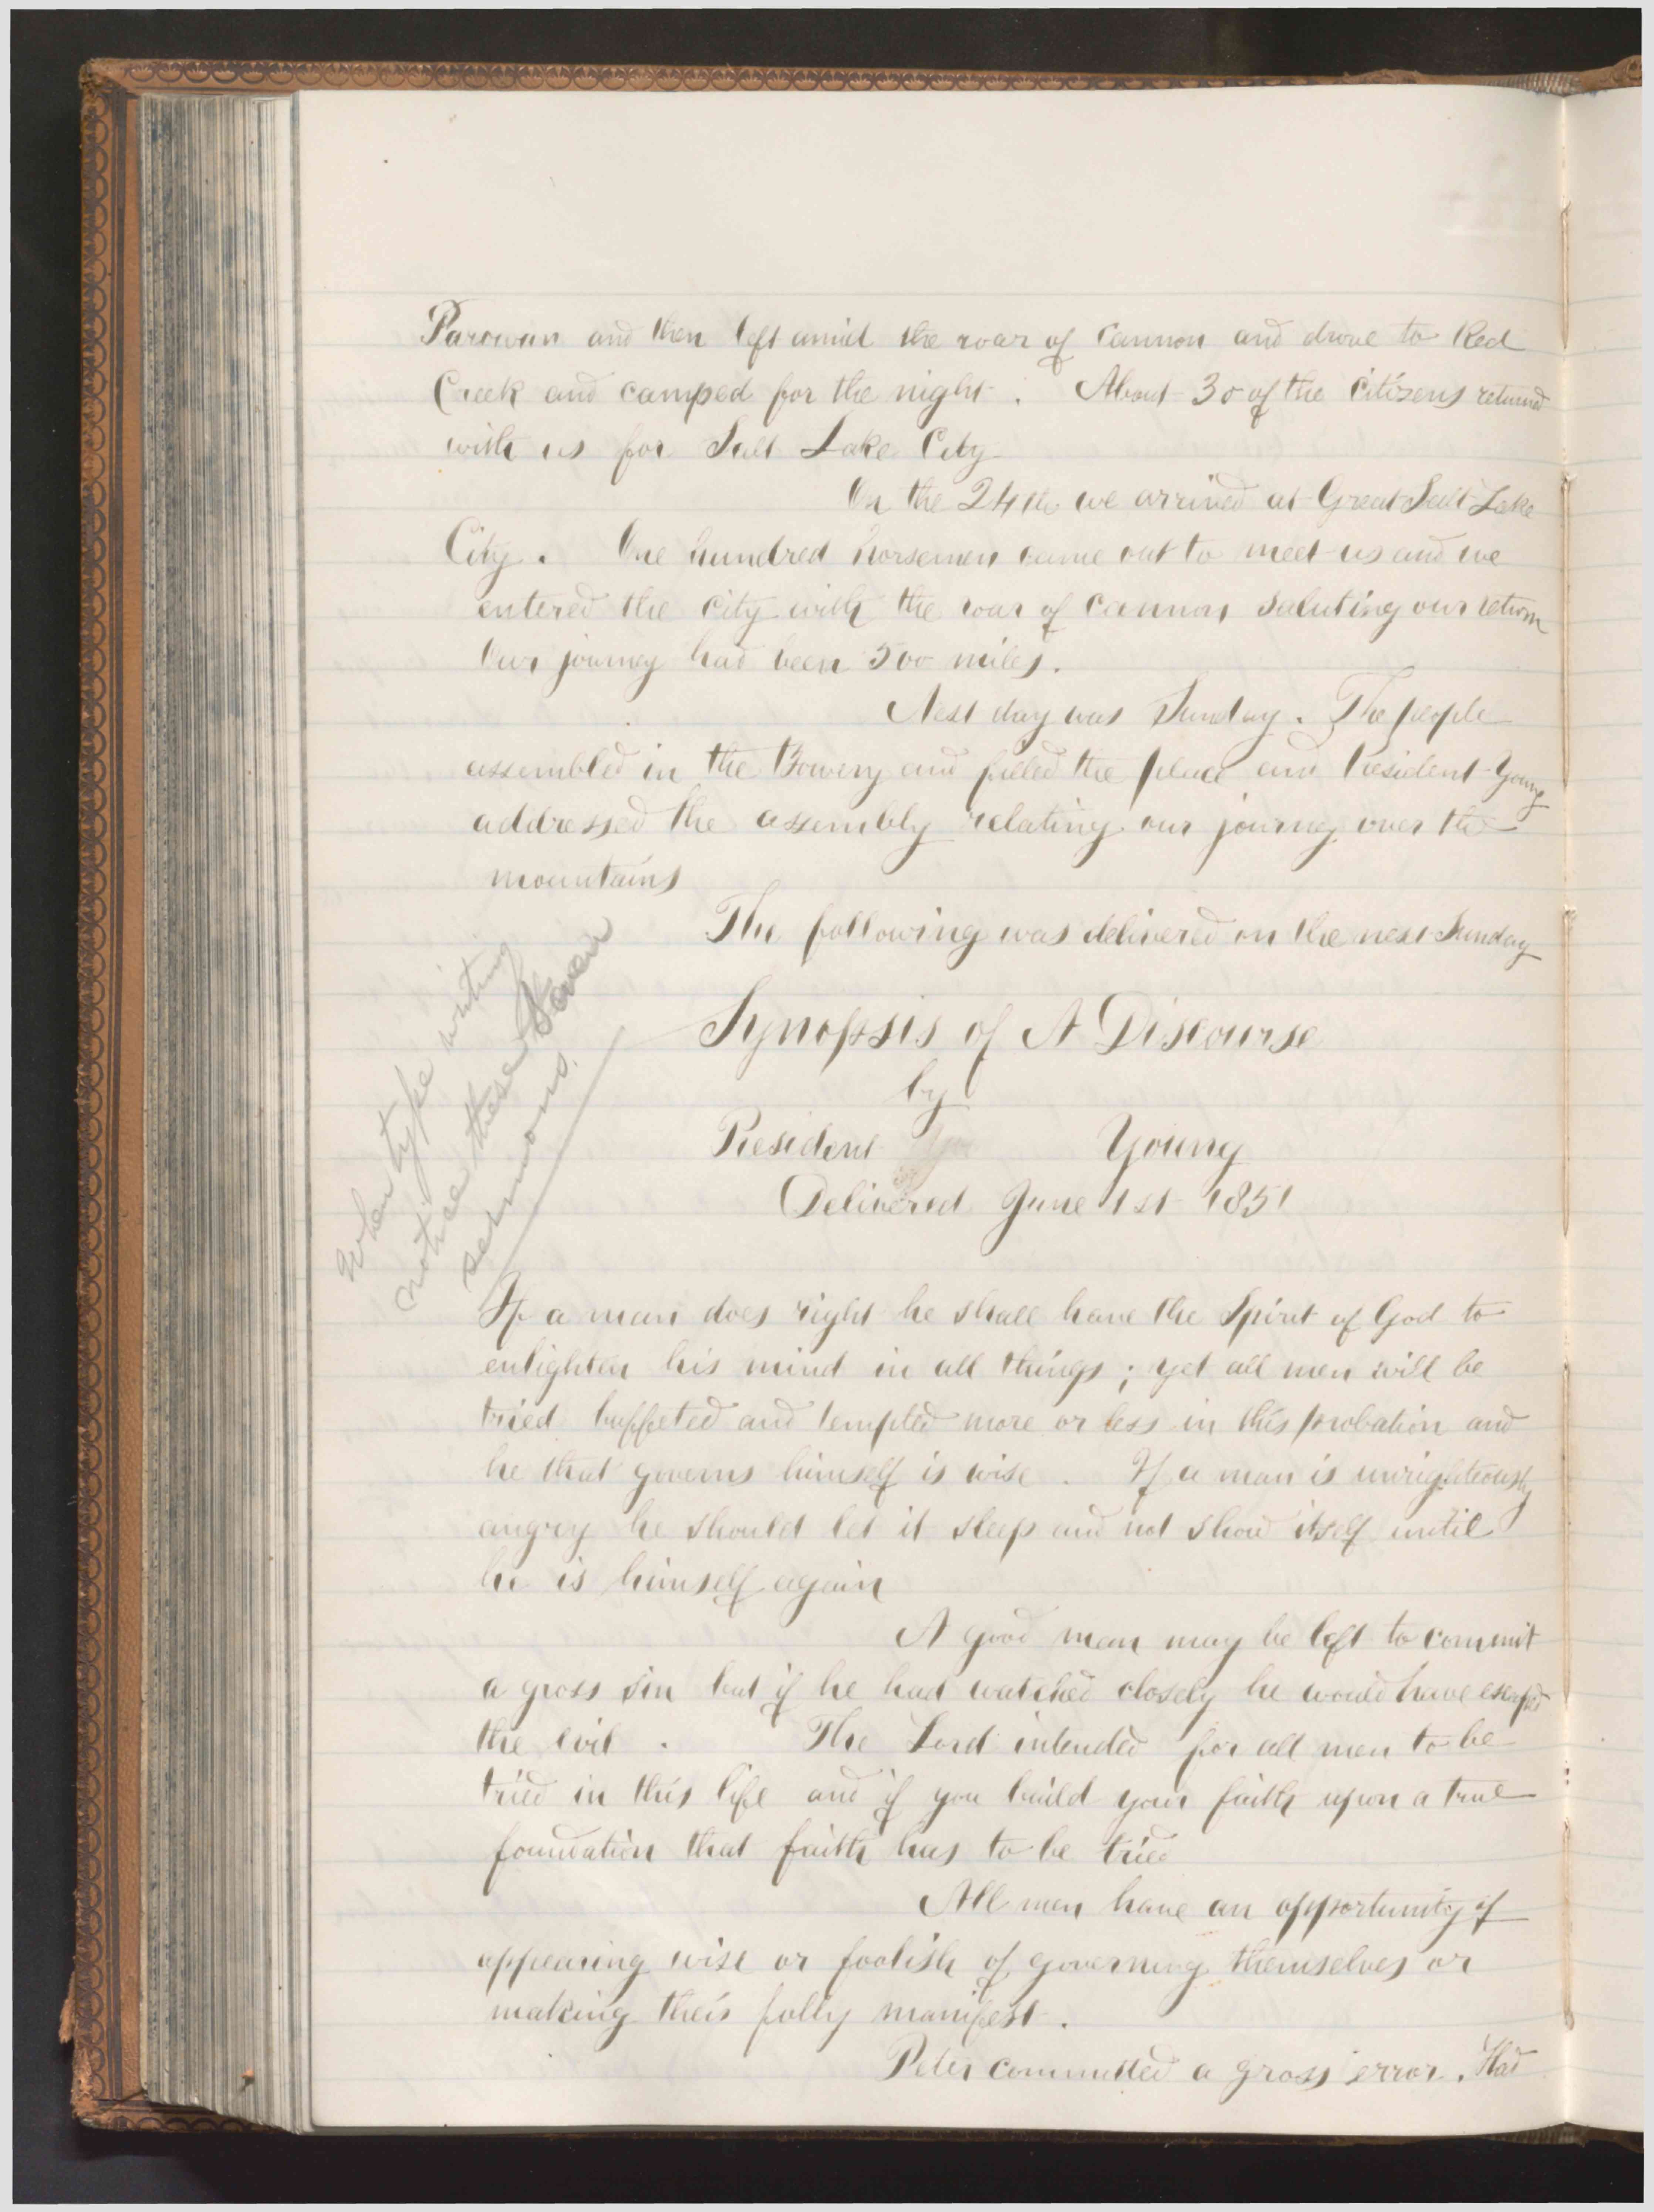 Parowan and then left amid the roar of Cannon and drove to Red
Creek and camped for the night. About 30 of the Citizens returned
with us for Salt Lake City
On the 24th we arrived at Great Salt Lake
City. One hundred horsemen came out to meet us and we
entered the city with the roar of Cannon saluting our return
Our journey had been 500 miles.
Next day was Sunday. The people
assembled in the Bowery and filled the place and President Young
addressed the assembly relating our journey over the
mountains
The following was delivered on the next Sunday
Synopsis of A Discourse
by
President Young
Delivered June 1st 1851
When type writing
notice these
sermons.
If a man does right he shall have the Spirit of God to
enlighten his mind in all things; yet all men will be
tried buffeted and tempted more or less in this probation and
he that governs himself is wise. If a man is unrighteously
angry he should let it sleep and not show itself until
he is himself again
A good man may be left to commit
a gross sin but if he had watched closely he would have escaped
the evil. The Lord intended for all men to be
tried in this life and if you build your faith upon a true
foundation that faith has to be tried
All men have an opportunity of
appearing wise or foolish of governing themselves or
making their folly manifest.
Peter committed a gross error. Had